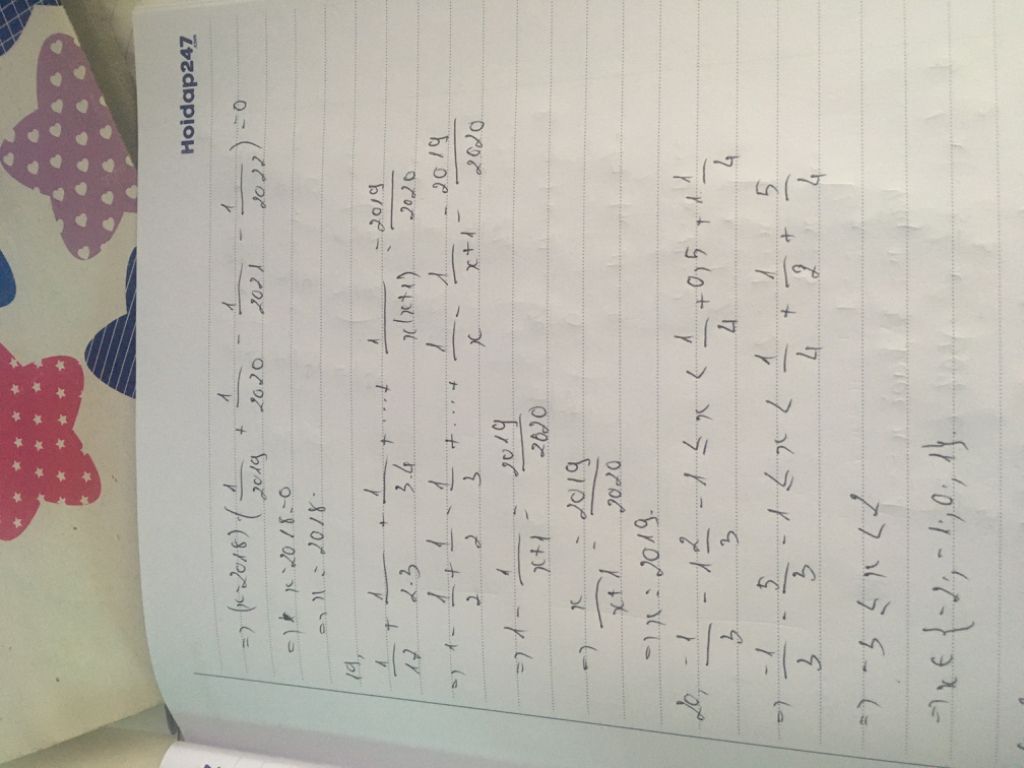 Hoidap247
=> (x-2018).(1/2019 + 1/2020 - 1/2021 - 1/2022) = 0
=> x-2018=0
=> x=2018.
19,
1/1.2 + 1/2.3 + 1/3.4 + ....+ 1/x(x+1) = 2019/2020
=> 1 - 1/2 + 1/2 - 1/3 + ....+ 1/x - 1/x+1 = 2019/2020
=> 1 - 1/x+1 = 2019/2020
=> x/x+1 = 2019/2020
=> x=2019.
20, -1/3 - 1 2/3 - 1 ≤ x < 1/4 + 0,5 + 1 1/4
=> -1/3 - 5/3 - 1 ≤ x < 1/4 + 1/2 + 5/4
=> -3 ≤ x < 2
=> x ∈ {-2; -1; 0; 1}